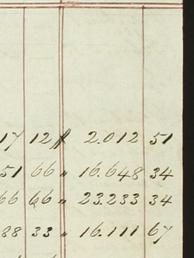 17 12 2.012 51
51 66 " 16.648 34
66 66 " 23.233 34
88 33 " 16.111 67